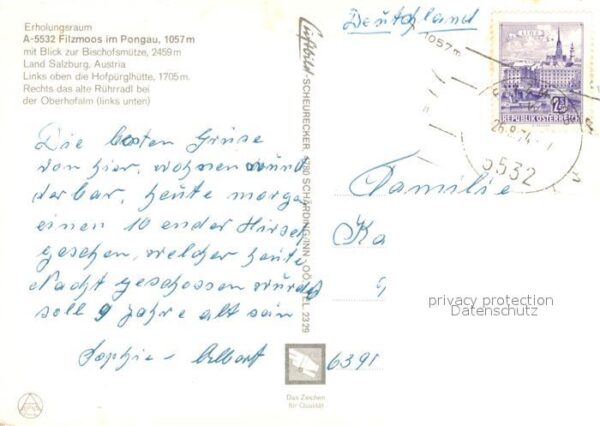 Erholungsraum
A-5532 Filzmoos im Pongau, 1057 m
mit Blick zur Bischofsmütze, 2459 m
Land Salzburg, Austria
Links oben die Hofpürglhütte, 1705 m.
Rechts das alte Rührradl bei
der Oberhofalm (links unten)
Die besten Grüße
von hier, wohnen wund
derbar, heute morgen
einen 10 ender Hirsch
gesehen, welcher heute
Nacht geschossen wurde
soll 9 Jahre alt sein
Sophie - Albert
Luftbild SCHEURECKER, 4780 SCHÄRDING/INN, OÖ., TEL. 2329
Das Zeichen
für Qualität
Deutschland
1057 m
2.50
REPUBLIK ÖSTERREICH
5532
Familie
Ka
6391
privacy protection
Datenschutz